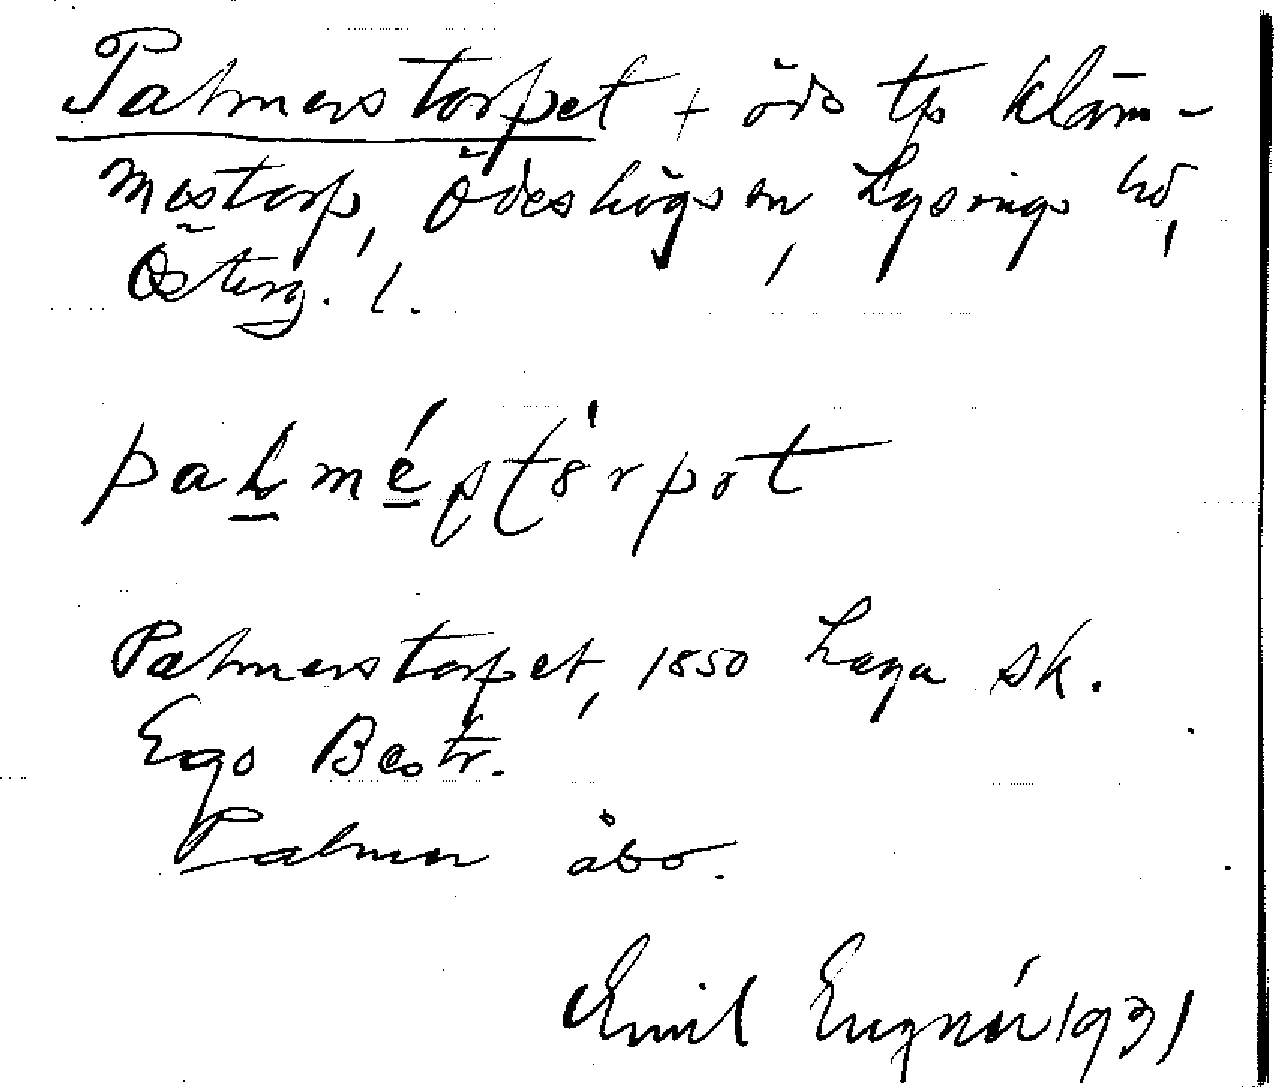 Palmerstorpet + öde tp Kläm-
mestorp, Ödeshögs sn, Lysings hd,
Österg. l.
Palmerstorpet, 1850 Laga sk.
Ego Bestr.
Palmer åbo.
Emil Engnér 1931